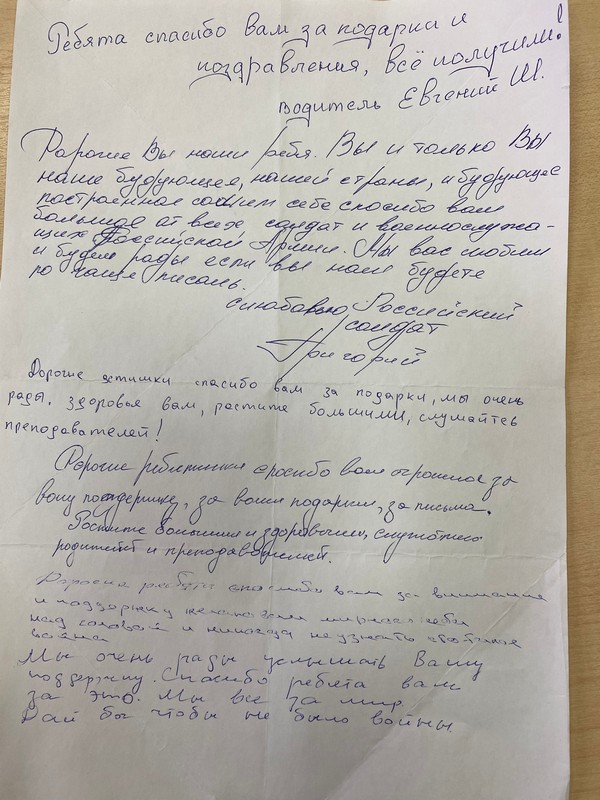 Ребята спасибо вам за подарки и
поздравления, всё получили!
водитель Евгений Ш.
Дорогие Вы наши ребя. Вы и только Вы
наше будующее, нашей страны, и будующее
построенное самим себе спосибо вам
большое от всех солдат и военнослужа-
щих Российской Армии. Мы вас любим
и будем рады если вы нам будете
по чаще писать.
с любовью Российский
солдат
Григорий
Дорогие детишки спасибо вам за подарки, мы очень
рады. здоровья вам, растите большими, слушайтесь
преподавателей!
Дорогие ребятишки спосибо вам огромное за
вашу поддержку, за ваши подарки, за письма.
Ростите большими и здоровыми, слушайтесь
родителей и преподавателей.
Дорогие ребята спасибо вам за внимание
и поддержку желаем мирного неба
над головой и никогда не узнать что такое
война
Мы очень рады услышать Вашу
поддержку. Спасибо ребята вам
за это. Мы все за мир
Дай бог чтобы не было войны.